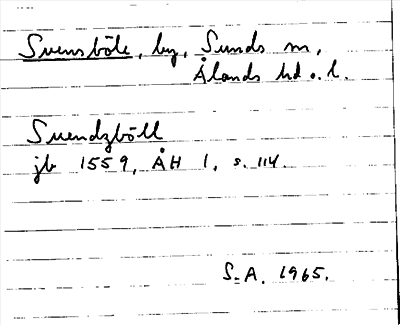 Svensböle, by, Sunds sn,
Ålands hd o. l.
Suendzböll
jb 1559, ÅH 1, s. 114.
S.A. 1965.